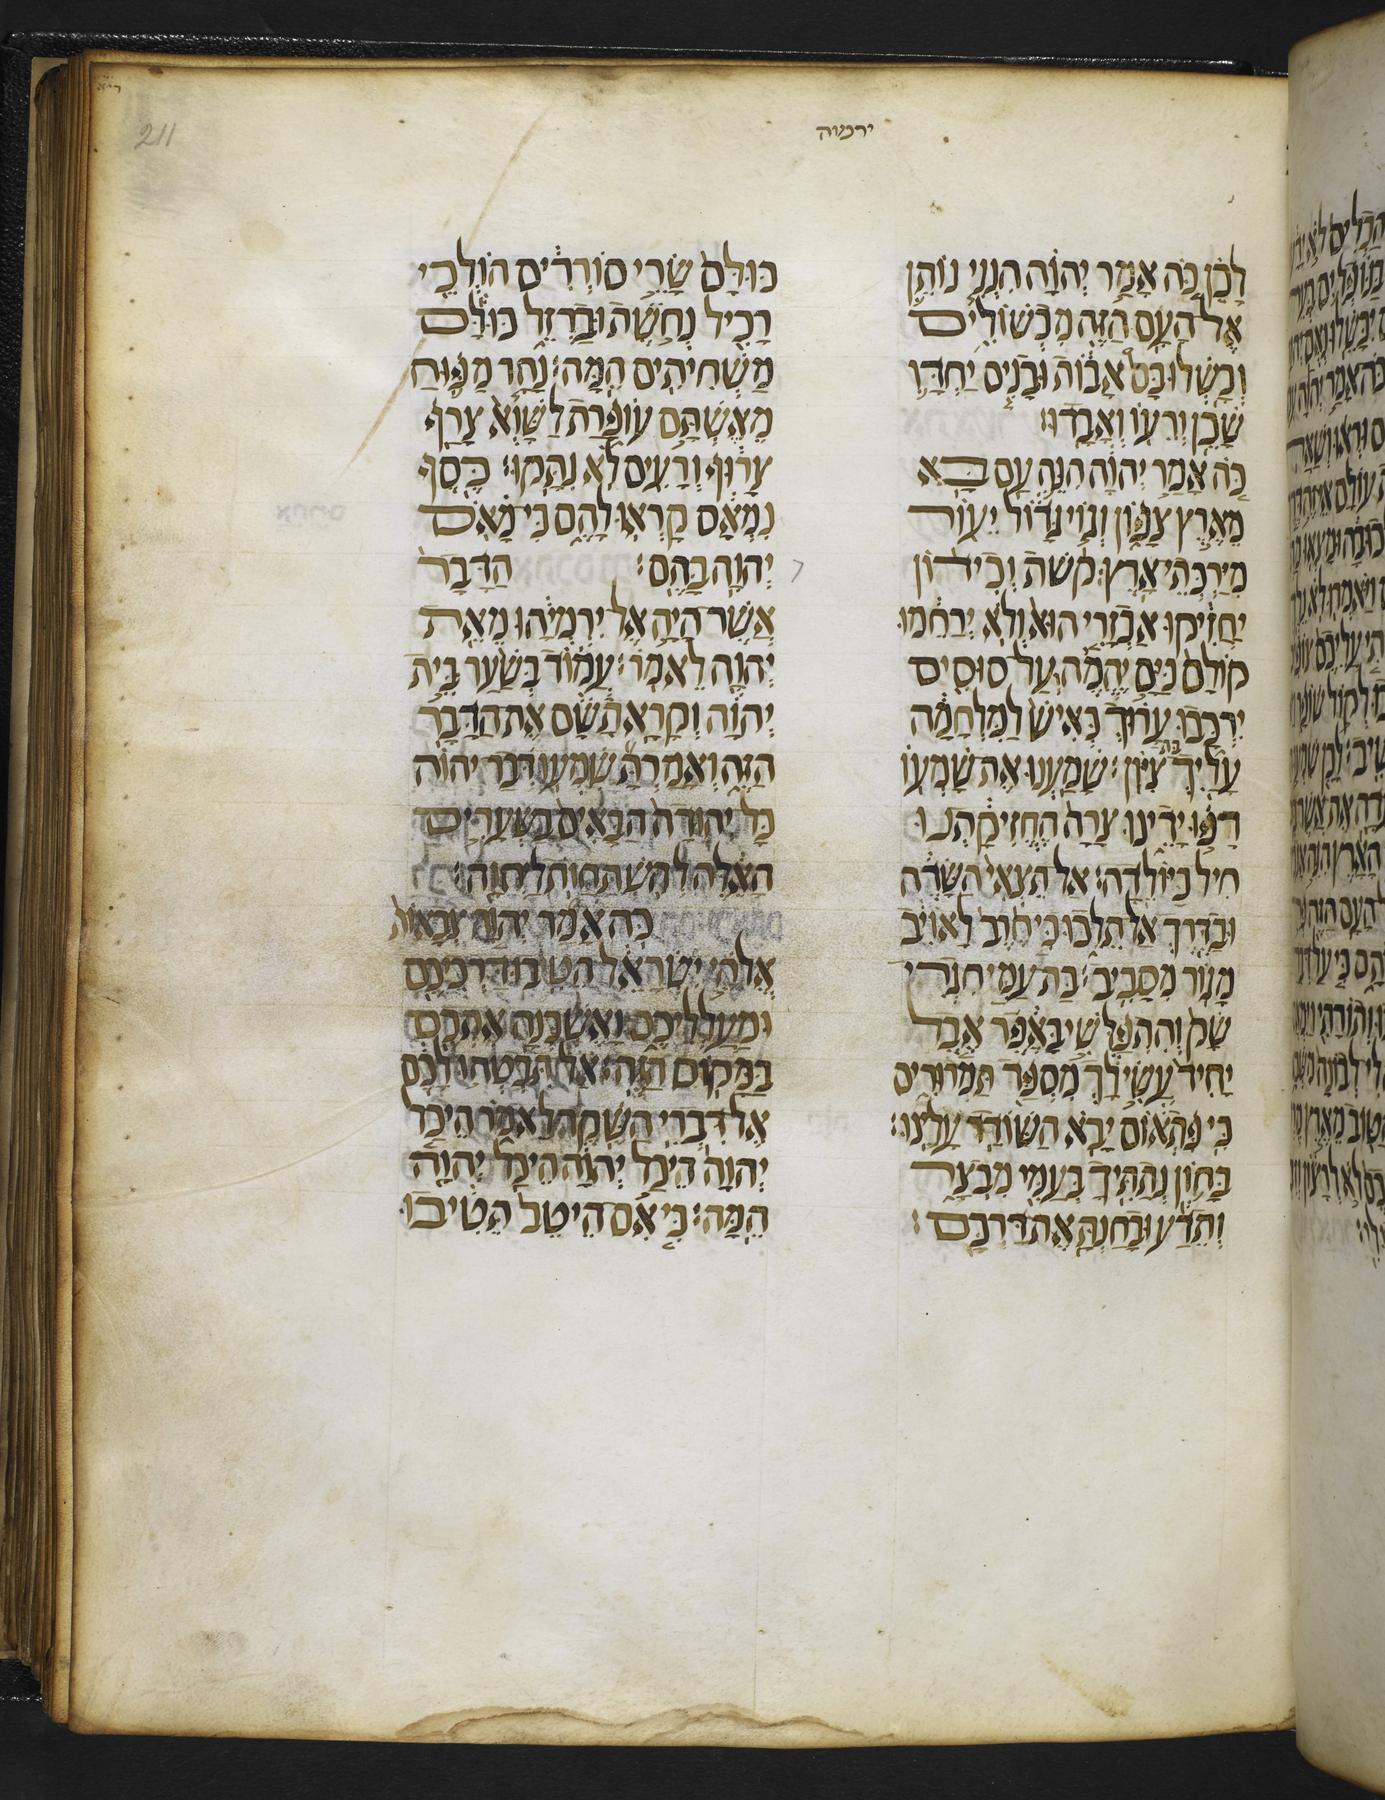 ירמיה
211
לָכֵן כֹּה אָמַר יְהוָה הִנְנִי נוֹתֵן
אֶל הָעָם הַזֶּה מִכְשׁוֹלִים
וְכָשְׁלוּ בָם אָבוֹת וּבָנִים יַחְדָּו
שָׁכֵן וְרֵעוֹ וְאָבָדוּ׃
כֹּה אָמַר יְהוָה הִנֵּה עַם בָּא
מֵאֶרֶץ צָפוֹן וְגוֹי גָּדוֹל יֵעוֹר
מִיַּרְכְּתֵי אָרֶץ׃ קֶשֶׁת וְכִידוֹן
יַחֲזִיקוּ אַכְזָרִי הוּא וְלֹא יְרַחֵמוּ
קוֹלָם כַּיָּם יֶהֱמֶה וְעַל סוּסִים
יִרְכָּבוּ עָרוּךְ כְּאִישׁ לַמִּלְחָמָה
עָלַיִךְ בת צִיּוֹן׃ שָׁמַעְנוּ אֶת שָׁמְעוֹ
רָפוּ יָדֵינוּ צָרָה הֶחֱזִיקַתְנוּ
חִיל כַּיּוֹלֵדָה׃ אַל תֵּצְאִי הַשָּׂדֶה
וּבַדֶּרֶךְ אַל תֵּלֵכוּ כִּי חֶרֶב לְאוֹיֵב
מָגוֹר מִסָּבִיב׃ בַּת עַמִּי חִגְרִי
שָׂק וְהִתְפַּלְּשִׁי בָאֵפֶר אֵבֶל
יָחִיד עֲשִׂי לָךְ מִסְפַּד תַּמְרוּרִים
כִּי פִתְאוֹם יָבֹא הַשּׁוֹדֵד עָלֵינוּ׃
בָּחוֹן נְתַתִּיךָ בְעַמִּי מִבְצָר
וְתֵדַע וּבָחַנְתָּ אֶת דַּרְכָּם׃
כּוּלָּם שָׂרֵי סוֹרְרִים הוֹלְכֵי
רָכִיל נְחֹשֶׁת וּבַרְזֶל כּוּלָּם
מַשְׁחִיתִים הֵמָּה׃ נָחַר מַפּוּחַ
מֵאֶשְׁתַּם עוֹפָרֶת לַשָּׁוְא צָרַף
צָרוֹף וְרָעִים לֹא נִתָּקוּ׃ כֶּסֶף
נִמְאָס קָרְאוּ לָהֶם כִּי מָאַס
יְהוָה בָּהֶם׃ הַדָּבָר
אֲשֶׁר הָיָה אֶל יִרְמְיָהוּ מֵאֵת
יְהוָה לֵאמֹר׃ עֲמוֹד בְּשַׁעַר בֵּית
יְהוָה וְקָרָאתָ שָּׁם אֶת הַדָּבָר
הַזֶּה וְאָמַרְתָּ שִׁמְעוּ דְבַר יְהוָה
כָּל יְהוּדָה הַבָּאִים בַּשְּׁעָרִים
הָאֵלֶּה לְהִשְׁתַּחֲוֹת לַיהוָה׃
כֹּה אָמַר יְהוָה צְבָאוֹת
אֱלֹהֵי יִשְׂרָאֵל הֵטִיבוּ דַרְכֵיכֶם
וּמַעַלְלֵיכֶם וַאֲשַׁכְּנָה אֶתְכֶם
בַּמָּקוֹם הַזֶּה׃ אַל תִּבְטְחוּ לָכֶם
אֶל דִּבְרֵי הַשֶּׁקֶר לֵאמֹר הֵיכַל
יְהוָה הֵיכַל יְהוָה הֵיכַל יְהוָה
הֵמָּה׃ כִּי אִם הֵיטֵב הֵטִיבוּ